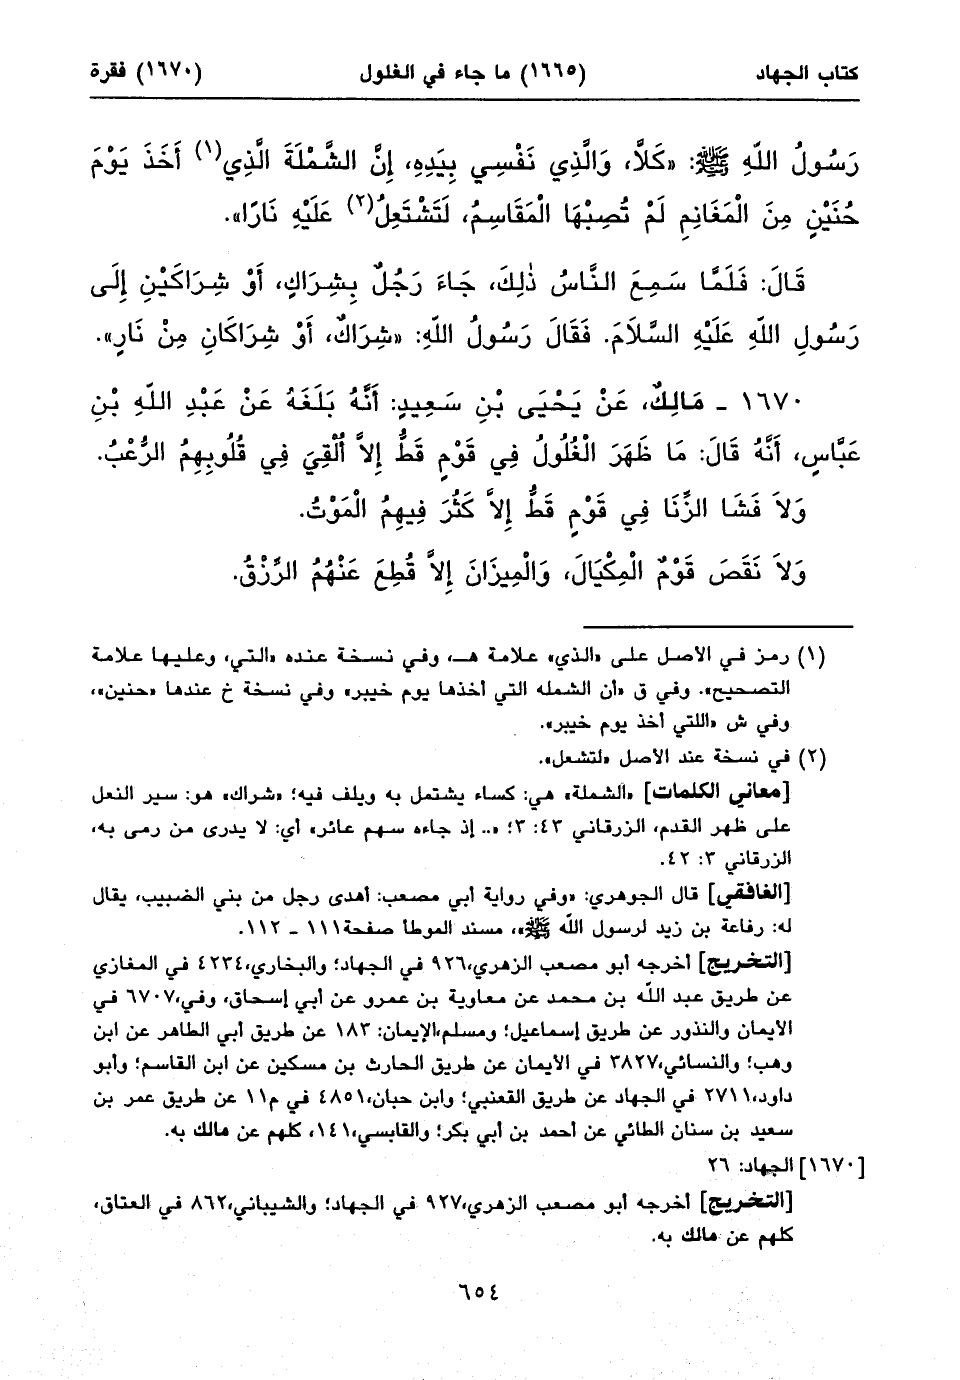 كتاب الجهاد (١٦٦٥) ما جاء في الغلول (١٦٧٠) فقرة
رَسُولُ اللَّهِ ﷺ: «كَلاَّ، وَالَّذِي نَفْسِي بِيَدِهِ، إِنَّ الشَّمْلَةَ الَّذِي(١) أَخَذَ يَوْمَ
حُنَيْنٍ مِنَ الْمَغَانِمِ لَمْ تُصِبْهَا الْمَقَاسِمُ، لَتَشْتَعِلُ(٢) عَلَيْهِ نَارًا».
قَالَ: فَلَمَّا سَمِعَ النَّاسُ ذٰلِكَ، جَاءَ رَجُلٌ بِشِرَاكٍ، أَوْ شِرَاكَيْنِ إِلَى
رَسُولِ اللَّهِ عَلَيْهِ السَّلاَمَ. فَقَالَ رَسُولُ اللَّهِ: «شِرَاكٌ، أَوْ شِرَاكَانِ مِنْ نَارٍ».
١٦٧٠ - مَالِكٌ، عَنْ يَحْيَى بْنِ سَعِيدٍ: أَنَّهُ بَلَغَهُ عَنْ عَبْدِ اللَّهِ بْنِ
عَبَّاسٍ، أَنَّهُ قَالَ: مَا ظَهَرَ الْغُلُولُ فِي قَوْمٍ قَطُّ إِلاَّ أُلْقِيَ فِي قُلُوبِهِمُ الرُّعْبُ.
وَلاَ فَشَا الزِّنَا فِي قَوْمٍ قَطُّ إِلاَّ كَثُرَ فِيهِمُ الْمَوْتُ.
وَلاَ نَقَصَ قَوْمٌ الْمِكْيَالَ، وَالْمِيزَانَ إِلاَّ قُطِعَ عَنْهُمُ الرِّزْقُ.
(١) رمز في الأصل على «الذي» علامة هـ، وفي نسخة عنده «التي، وعليها علامة
التصحيح». وفي ق «أن الشمله التي أخذها يوم خيبر» وفي نسخة خ عندها «حنين»،
وفي ش «اللتي أخذ يوم خيبر».
(٢) في نسخة عند الأصل «لتشعل».
[معاني الكلمات] «الشملة» هي: كساء يشتمل به ويلف فيه؛ «شراك» هو: سير النعل
على ظهر القدم، الزرقاني ٤٣: ٣؛ «.. إذ جاءه سهم عائر» أي: لا يدرى من رمى به،
الزرقاني ٣: ٤٢.
[الغافقي] قال الجوهري: «وفي رواية أبي مصعب: أهدى رجل من بني الضبيب، يقال
له: رفاعة بن زيد لرسول اللّه ﷺ»، مسند الموطأ صفحة١١١ - ١١٢.
[التخريج] أخرجه أبو مصعب الزهري،٩٢٦ في الجهاد؛ والبخاري،٤٢٣٤ في المغازي
عن طريق عبد اللّه بن محمد عن معاوية بن عمرو عن أبي إسحاق، وفي،٦٧٠٧ في
الأيمان والنذور عن طريق إسماعيل؛ ومسلم،الإيمان: ١٨٣ عن طريق أبي الطاهر عن ابن
وهب؛ والنسائي،٣٨٢٧ في الأيمان عن طريق الحارث بن مسكين عن ابن القاسم؛ وأبو
داود،٢٧١١ في الجهاد عن طريق القعنبي؛ وابن حبان،٤٨٥١ في م١١ عن طريق عمر بن
سعيد بن سنان الطائي عن أحمد بن أبي بكر؛ والقابسي،١٤١، كلهم عن مالك به.
[١٦٧٠] الجهاد: ٢٦
[التخريج] أخرجه أبو مصعب الزهري،٩٢٧ في الجهاد؛ والشيباني،٨٦٢ في العتاق،
كلهم عن مالك به.
٦٥٤